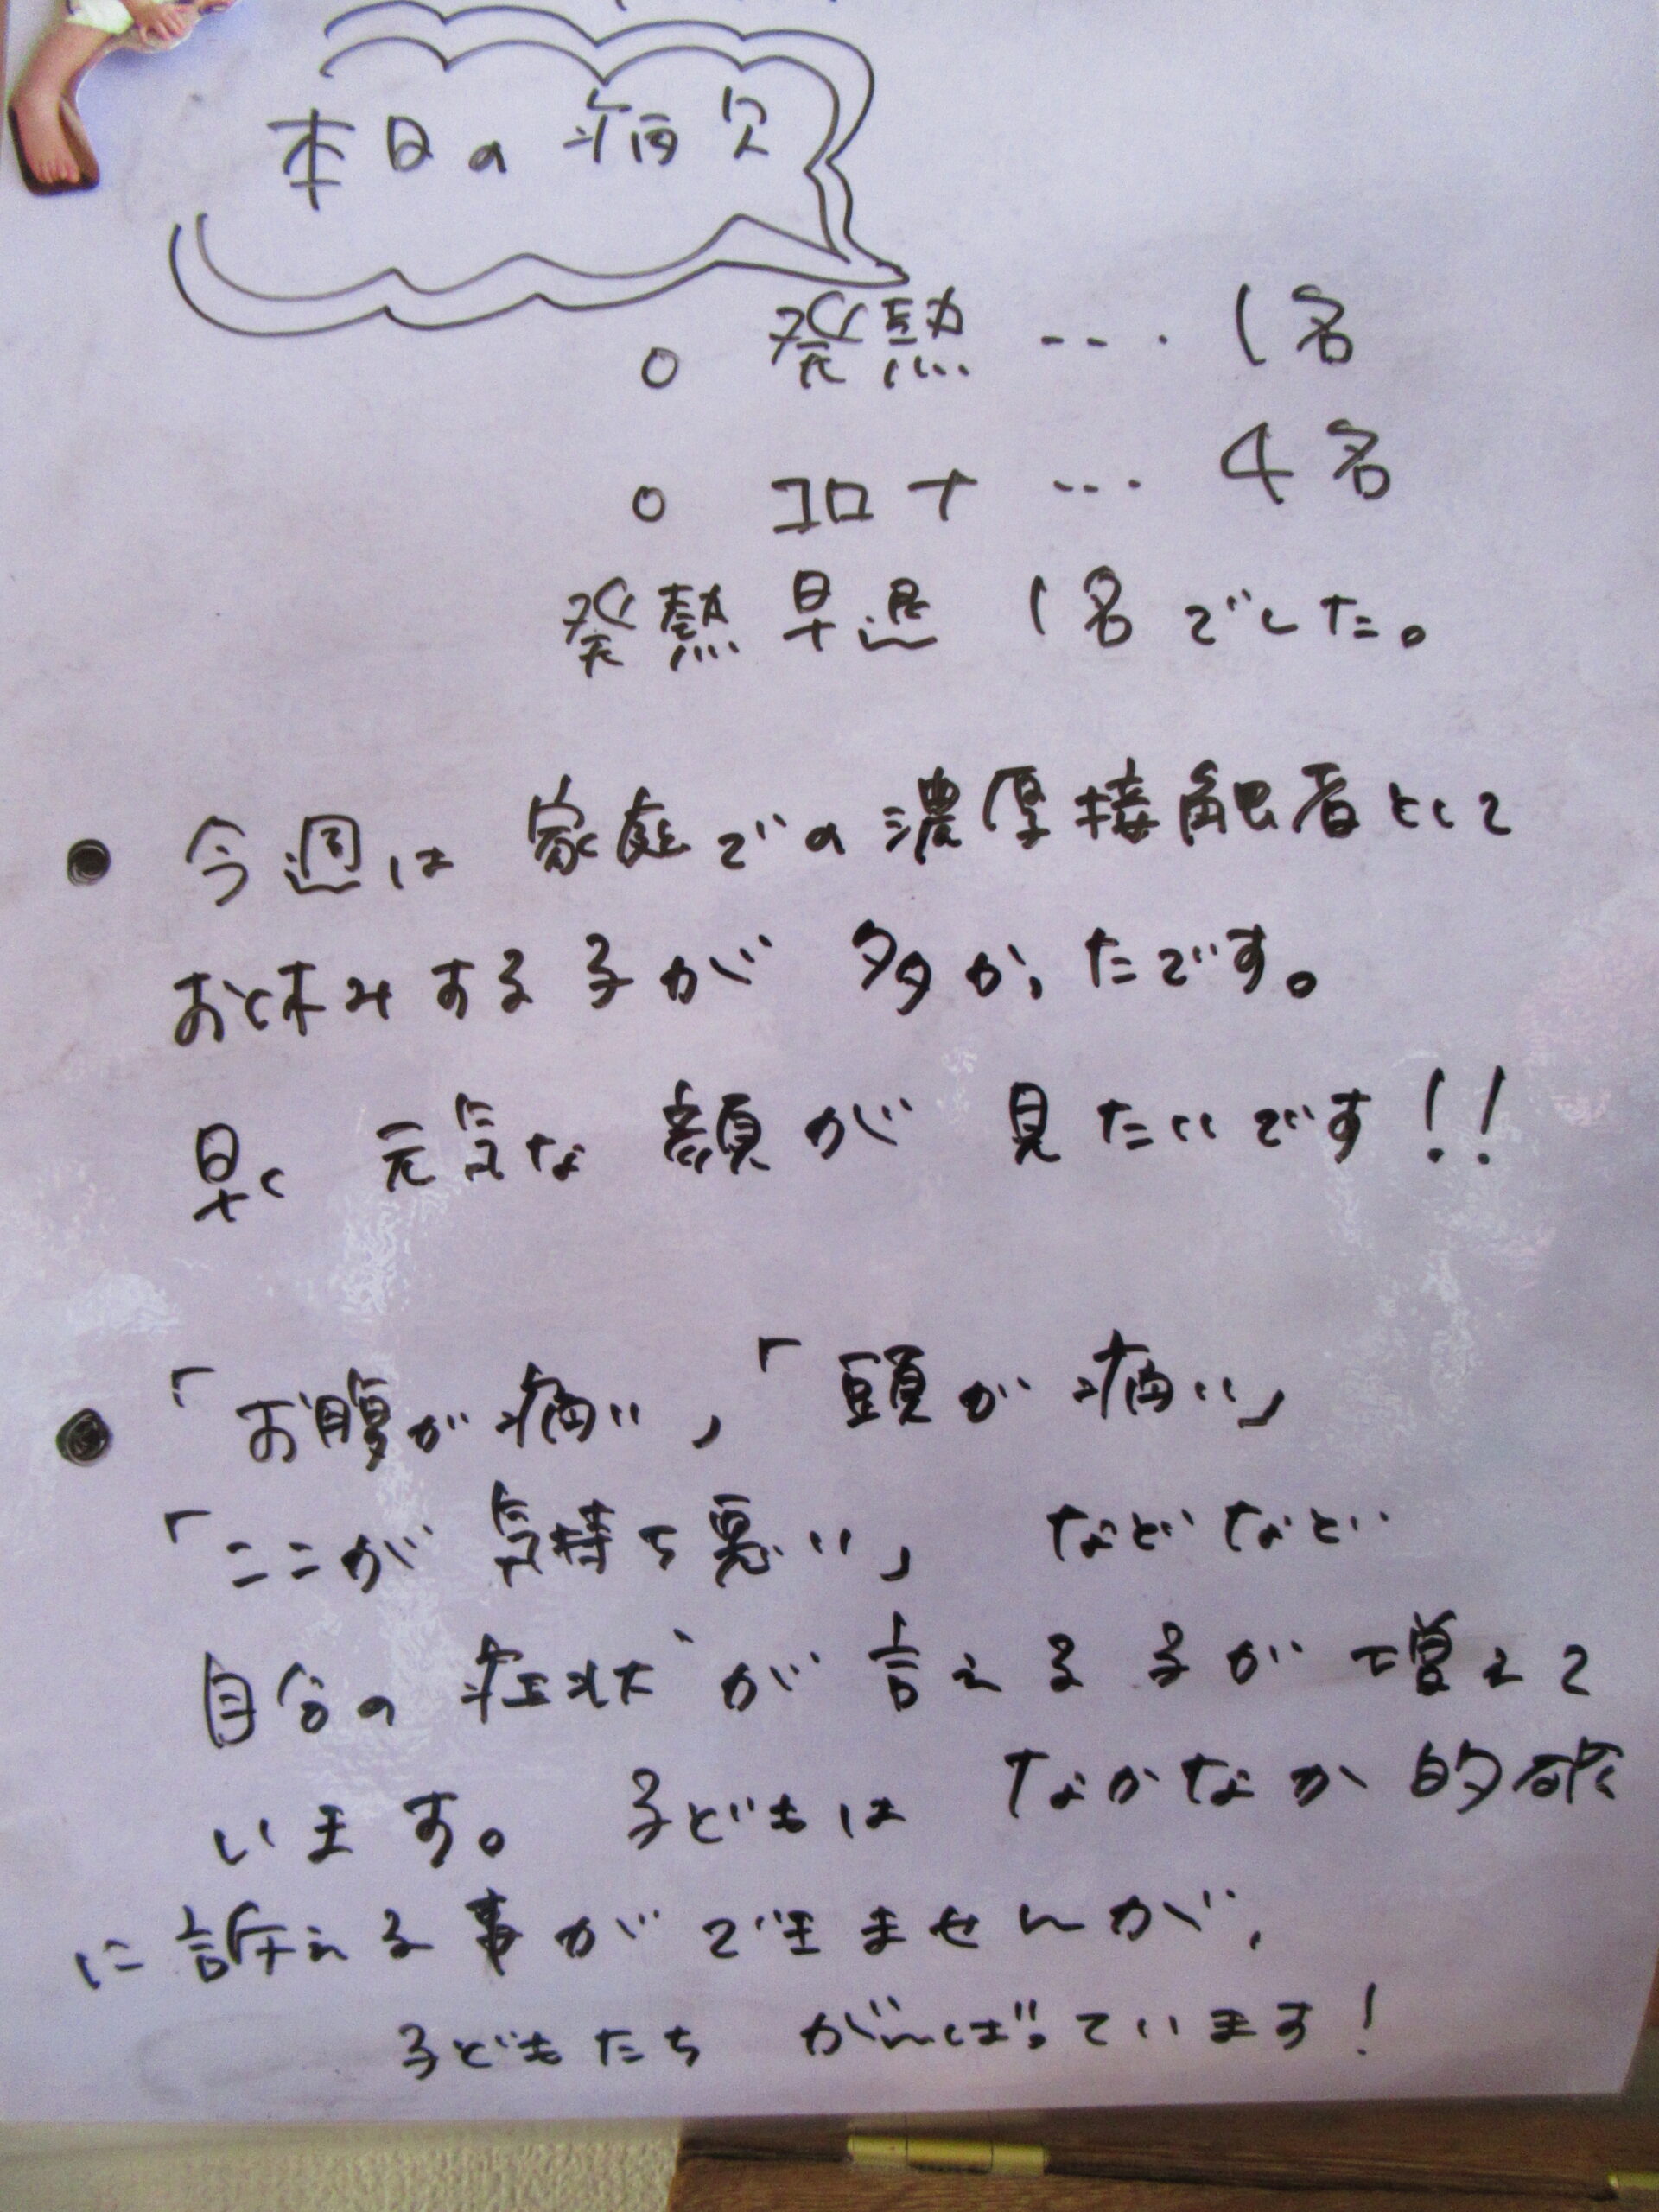 本日の病欠
○ 発熱 ・・・・ 1名
○ コロナ ・・・ 4名
発熱早退 1名でした。
● 今週は 家庭での濃厚接触者として
お休みする子が 多かったです。
早く 元気な 顔が 見たいです!!
● 「お腹が痛い」「頭が痛い」
「ここが 気持ち悪い」 などなど
自分の 症状が 言える子が 増えて
います。 子どもは なかなか 的確
に訴える事ができませんが、
子どもたち がんばっています!